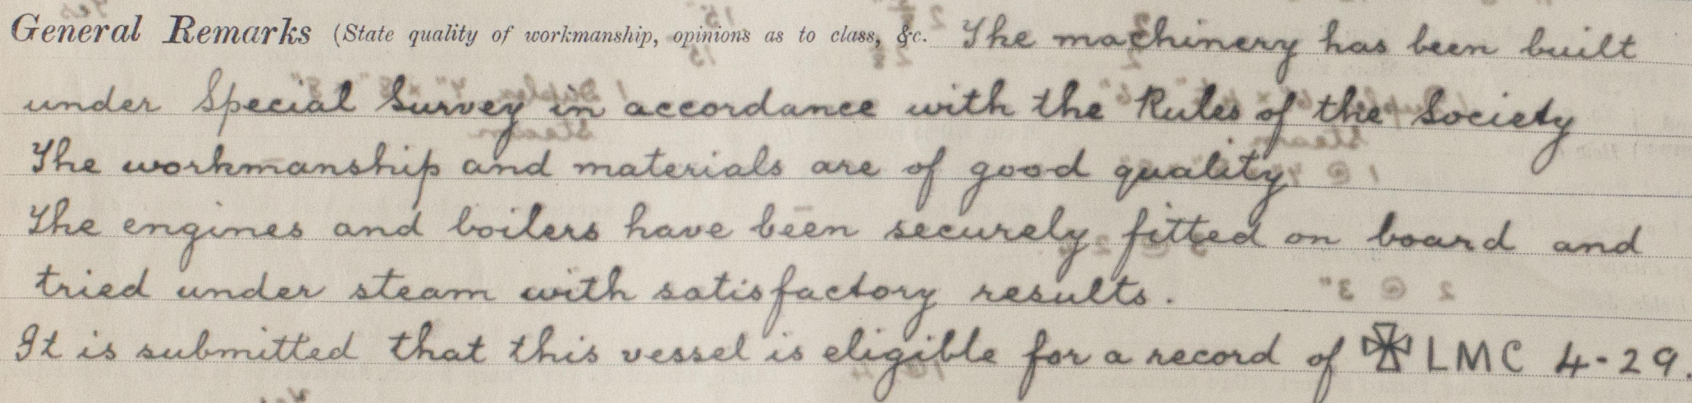 General Remarks (State quality of workmanship, opinions as to class, &c. The machinery has been built
under Special Survey in accordance with the Rules of the Society
The workmanship and materials are of good quality
The engines and boilers have been securely fitted on board and
tried under steam with satisfactory results.
It is submitted that this vessel is eligible for a record of ✠ LMC 4-29.